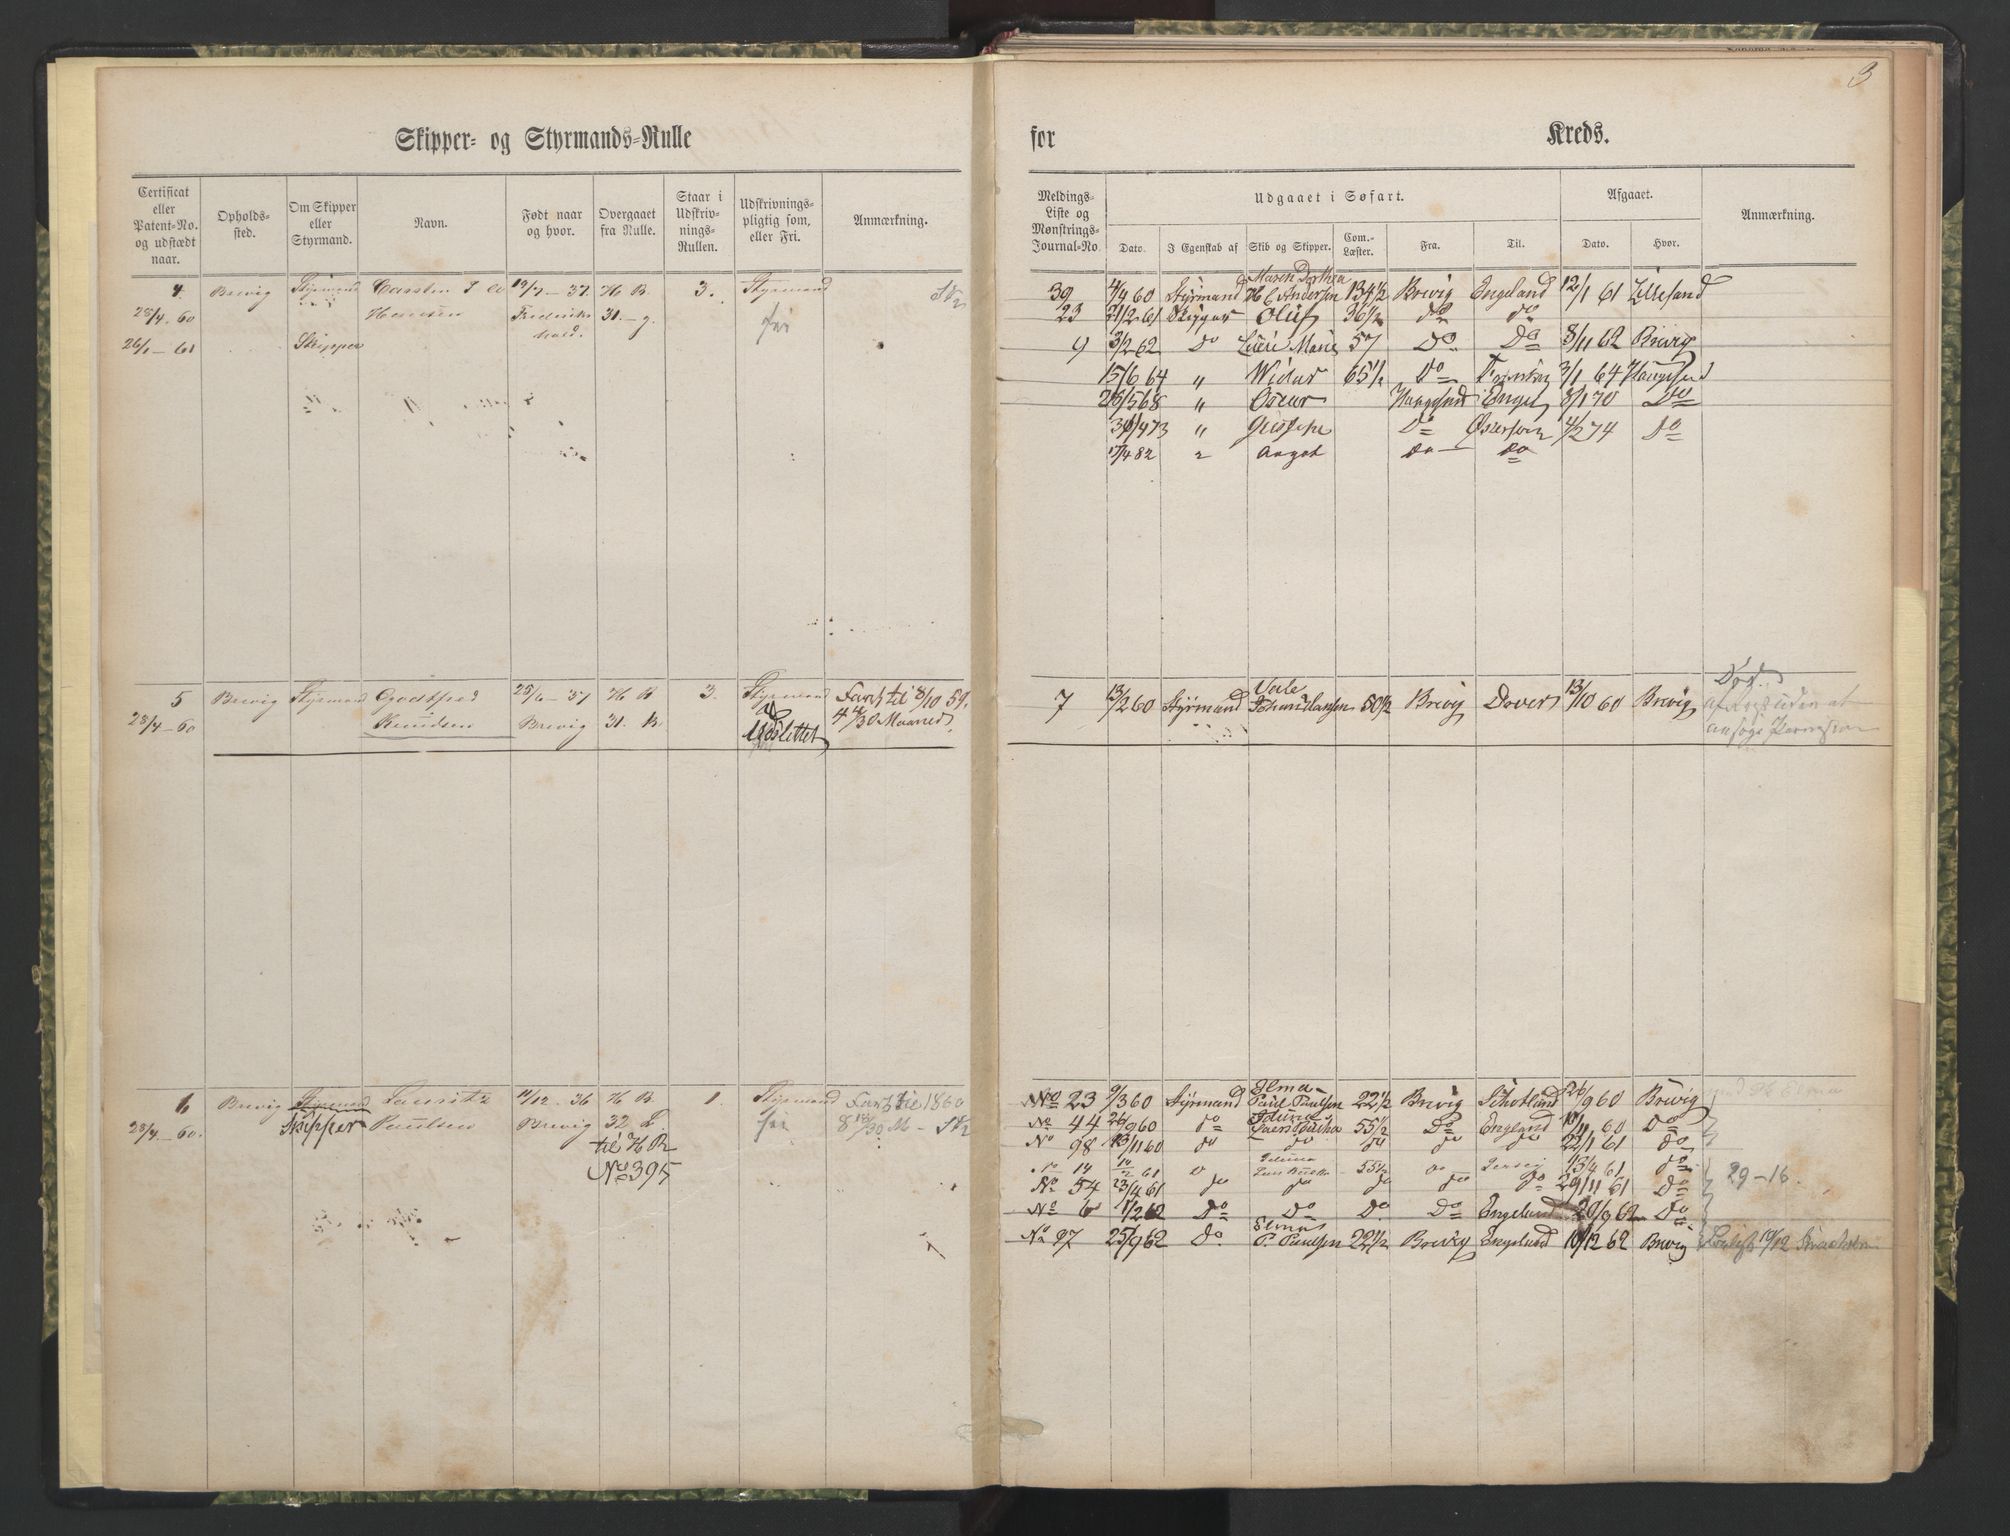 3
Skipper- og Styrmands-Rulle
for Kreds.
Certificat eller Patent-No. og udstædt naar.
Opholds-sted.
Om Skipper eller Styrmand.
Navn.
Født naar og hvor.
Overgaaet fra Rulle.
Staar i Udskriv-nings-Rullen.
Udskrivnings-pligtig som, eller Fri.
Anmærkning.
Meldings-Liste og Mønstrings-Journal-No.
Udgaaet i Søfart.
Dato.
I Egenskab af
Skib og Skipper.
Com.-Læster.
Fra.
Til.
Afgaaet.
Dato.
Hvor.
Anmærkning.
4. Brevig Styrmand Carsten 19/7 – 37. H B. 3. Styrmand
28/4 – 60 Hansen Frederiks 31. – g. fri
26/1 – 61 Skipper hald.
Maren Dorthea
39 4/4 60 Styrmand H C Andersen 134 1/2 Brevig Engeland 12/1 61 Lillesand
23 21/2 61 Skipper Oluf 36 1/2 do do
9 3/2 62 Do Marie 57 Do Do 8/11 62 Brevig
15/6 64 " Widar 65 1/2 Do 3/1 64 Haugesund
25/5 68 " Oscar Haugesund Engel 8/1 70 Do
31/4 73 " Do 4/2 74 do
17/4 82 " do do
5 Brevig Styrmand Godtfred 25/6 – 37 H B 3. Styrmand Fart til 8/10 59.
28/4 – 60 Knudsen Brevig 31. k. Udslettet 44 /30 Maaned
Død
7 13/2 60 Styrmand Johan Hansen 50 1/2 Brevig Dover 13/10 60 Brevig
6 Brevig Styrmand Lauritz 11/12 – 36 H B. 1. Styrmand Fart til 1860
28/4 – 60. Skipper Paulsen Brevig 32 L. fri 8 18/30 M –
til H R
No 395
Elma
No 23 9/3 60 Styrmand Paul Paulsen 22 1/2 Brevig Schotland 26/9 60 Brevig
Iduna
No 44 26/9 60 do 55 1/2 Do Engeland 10/11 60 Do
No 98 13/11 60 do do do do do 22/1 61 do
Iduna
No 14 14/2 61 do 55 1/2 do 15/4 61 do
29–16.
No 54 23/4 61 do do do do do 29/11 61 Do
No 6 1/2 62 Do Do Do Do Engeland 20/9 62 Do
Elmas
No 97 25/9 62 do. P. Paulsen 22 1/2 Brevig Engeland 10/12 62 Brevig